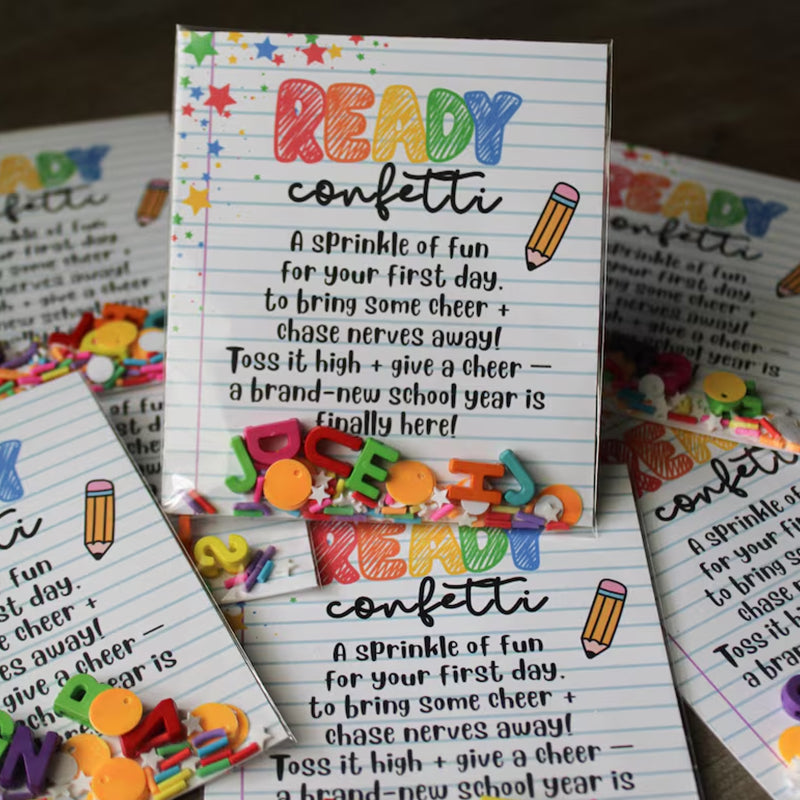 READY
confetti
A sprinkle of fun
for your first day.
to bring some cheer +
chase nerves away!
Toss it high + give a cheer —
a brand-new school year is
finally here!
J D C E H J
READY
confetti
prinkle of fun
our first day.
g some cheer +
nerves away!
+ give a cheer
READY
confetti
A sprinkle of fun
for your first day.
to bring some cheer +
chase nerves away!
Toss it high + give a cheer
school year is
fun
st day.
cheer +
away!
give a cheer —
school year is
N B A
S
READY
confetti
A sprinkle of fun
for your first day.
to bring some cheer +
chase nerves away!
Toss it high + give a cheer —
a brand-new school year is
confetti
A sprinkle of
for your first
to bring some
chase nerve
Toss it high
a brand